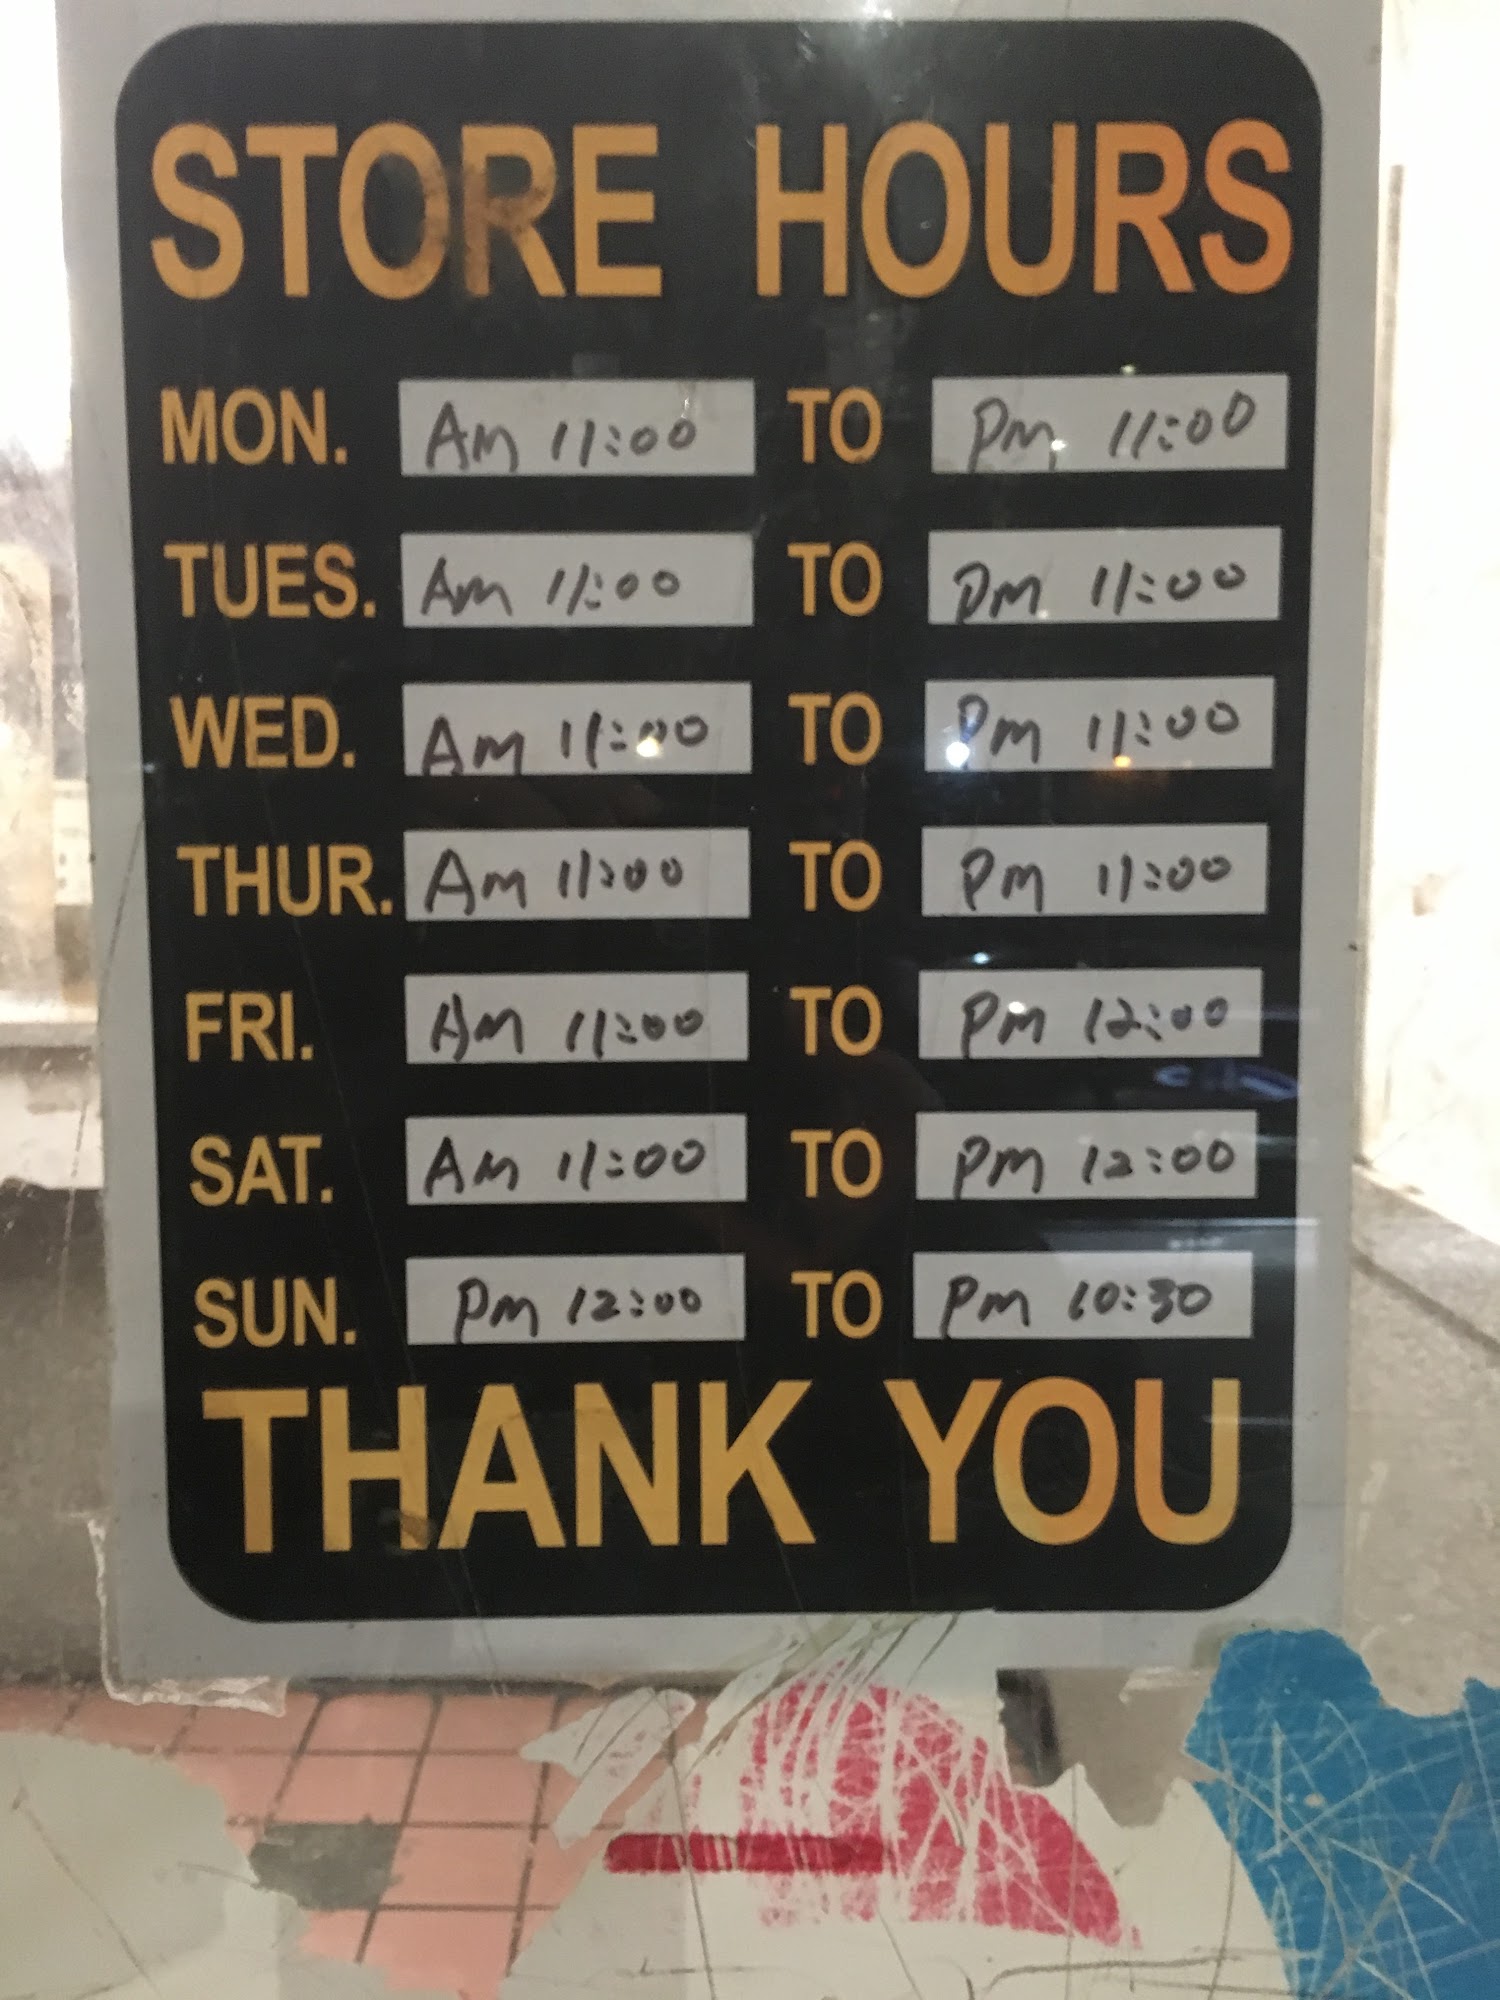 STORE HOURS
MON. Am 11:00 TO Pm 11:00
TUES. Am 11:00 TO Pm 11:00
WED. Am 11:00 TO Pm 11:00
THUR. Am 11:00 TO Pm 11:00
FRI. Am 11:00 TO Pm 12:00
SAT. Am 11:00 TO Pm 12:00
SUN. Pm 12:00 TO Pm 10:30
THANK YOU